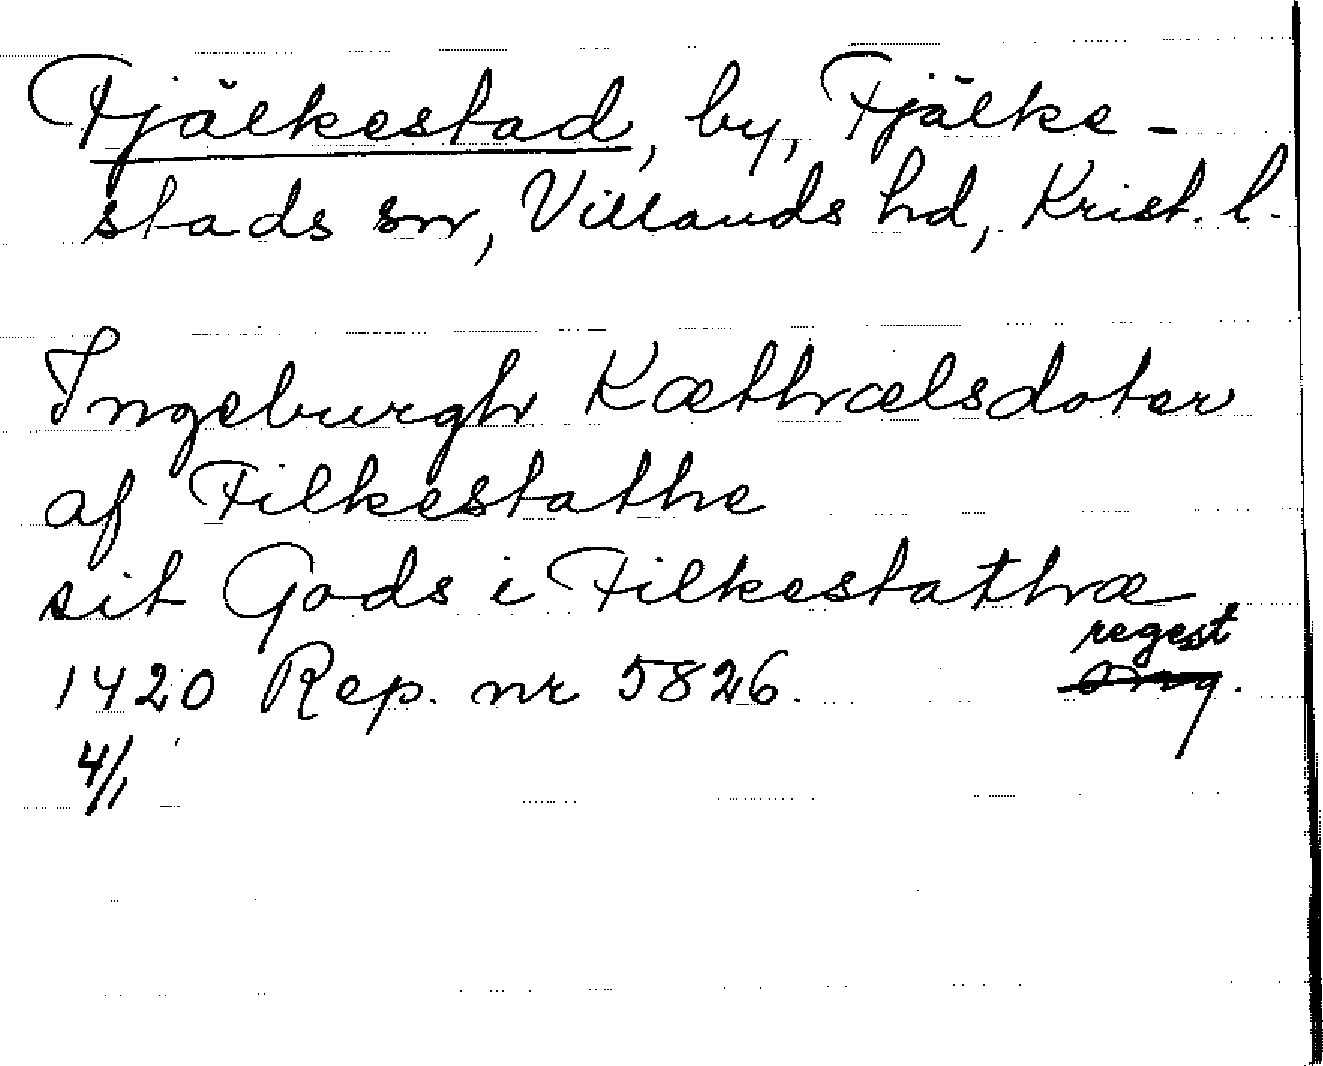 Fjälkestad, by, Fjälke-
stads sn, Villands hd, Krist. l.
Ingeburgh Kæthælsdoter
af Filkestathe
sit Gods i Filkestathæ
regest
1420 Rep. nr 5826.
4/1